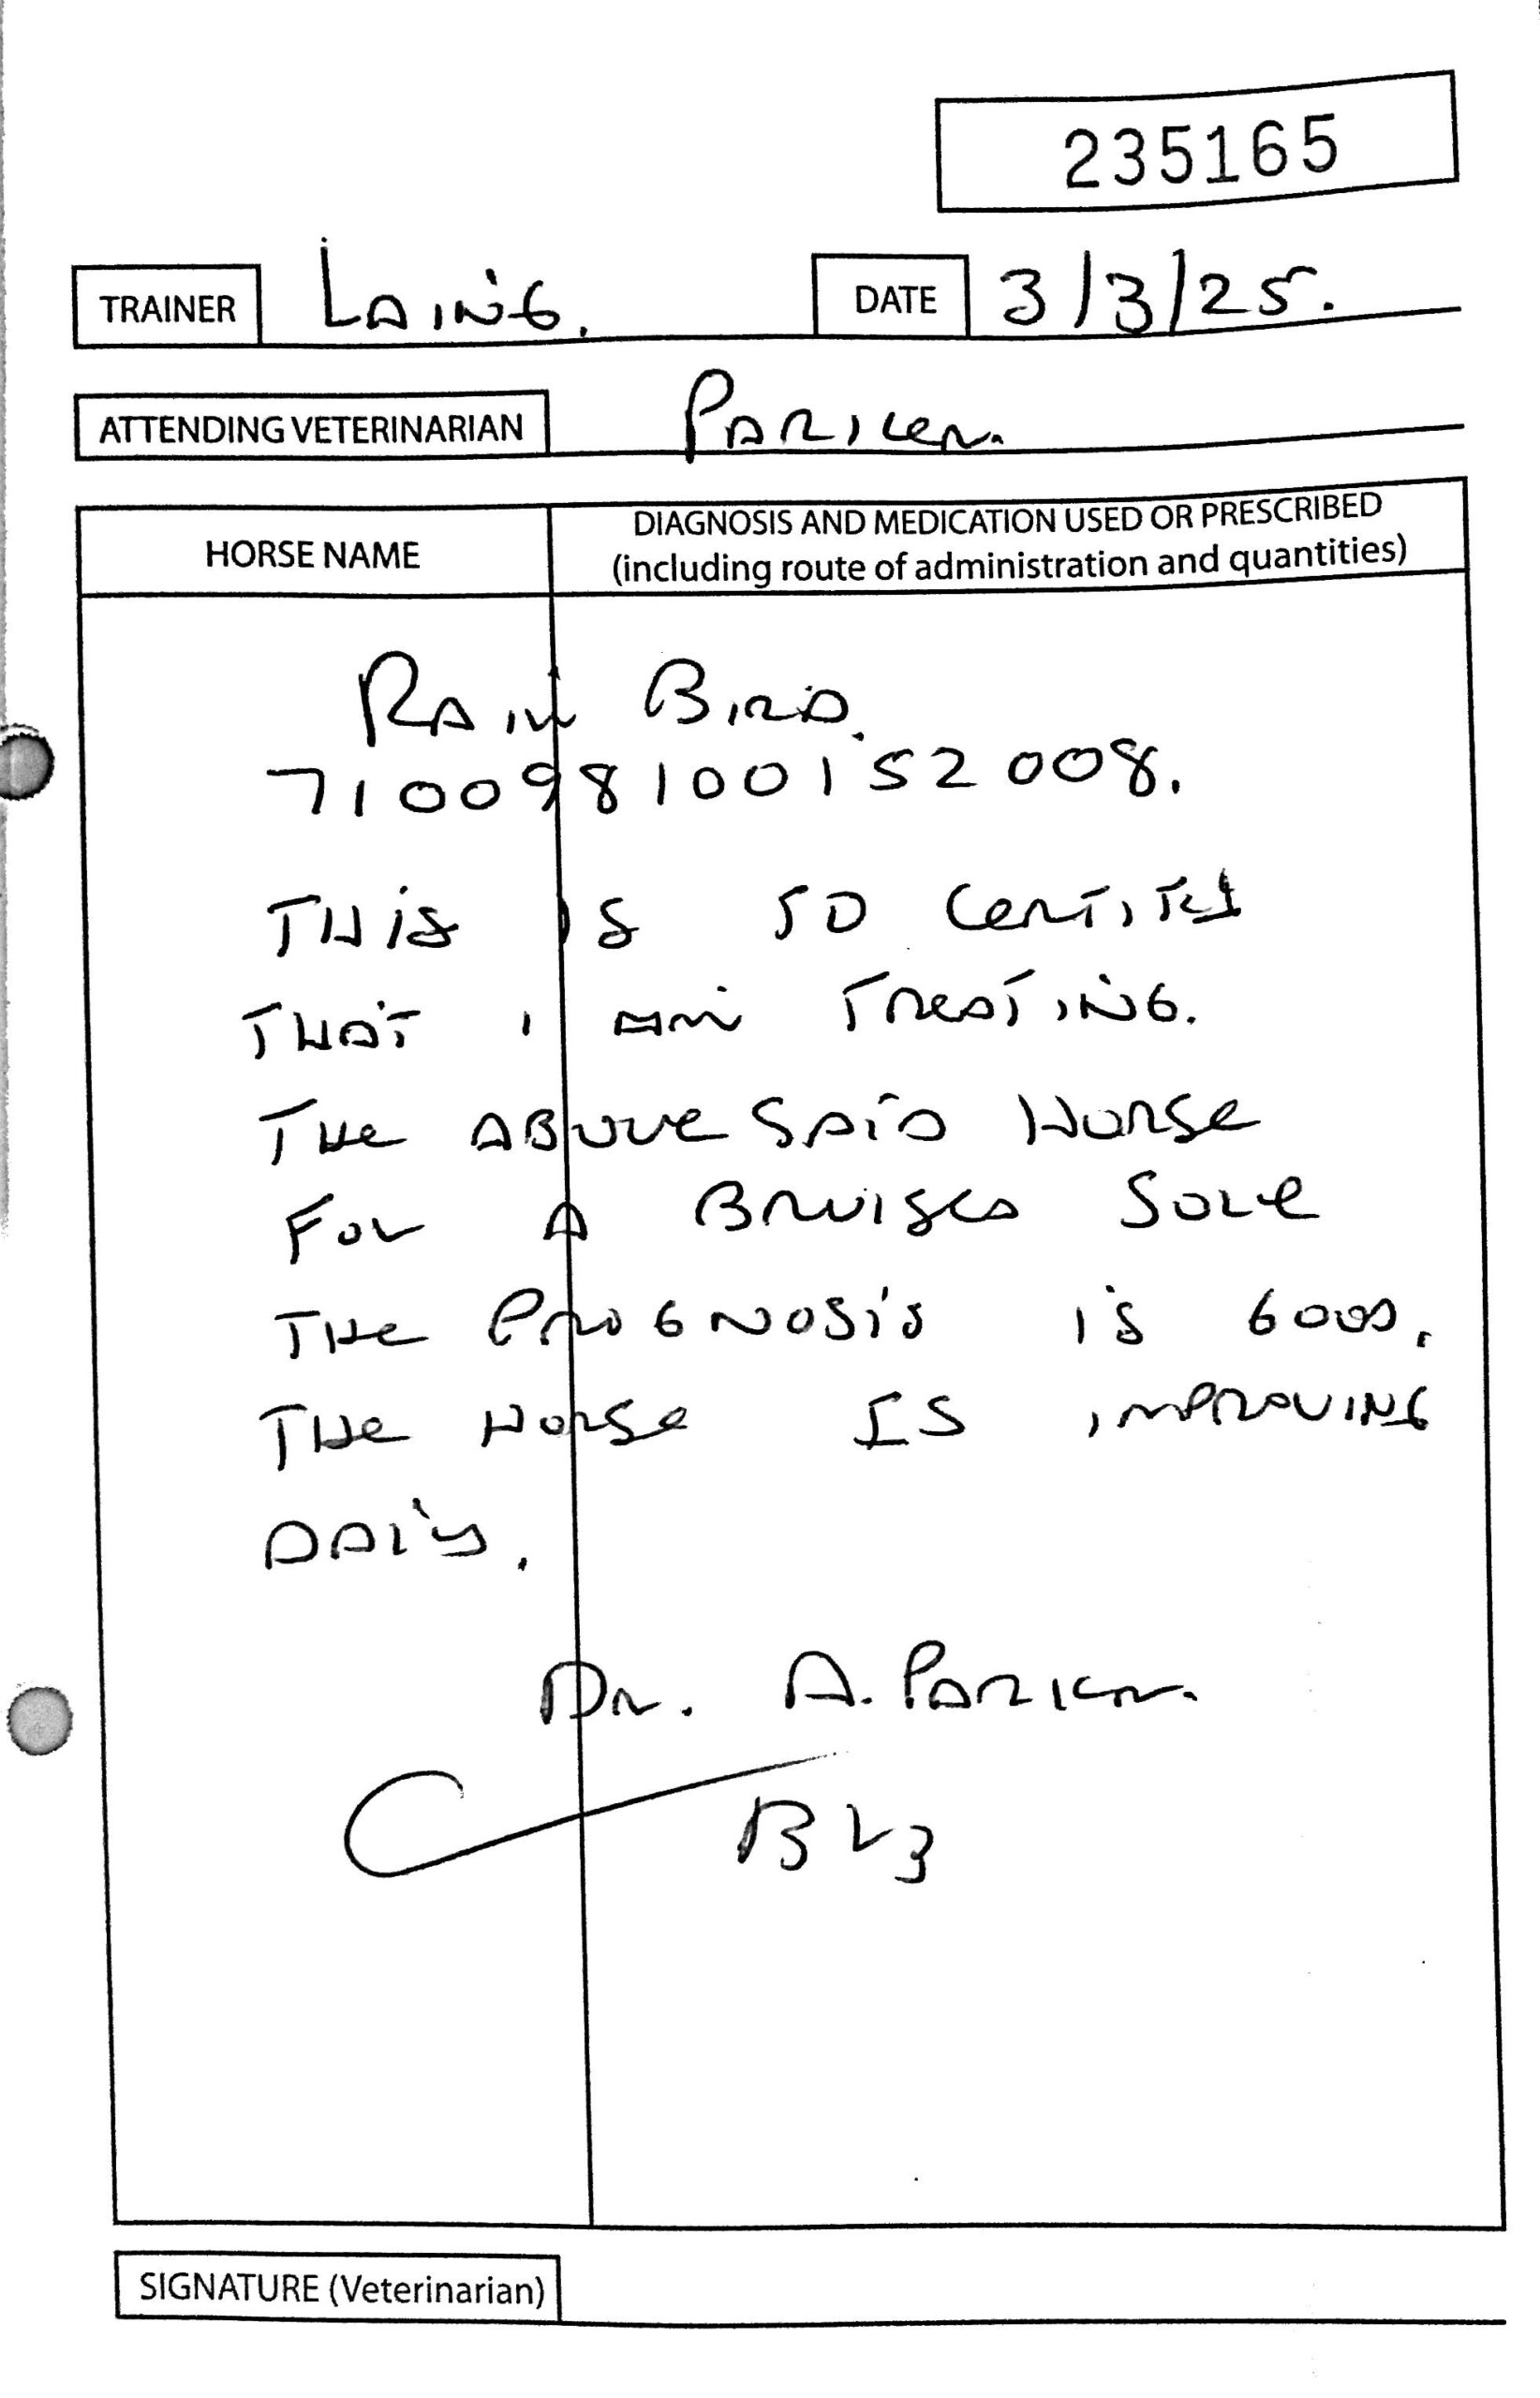 235165
TRAINER LAING. DATE 3/3/25.
ATTENDING VETERINARIAN PARKER.
HORSE NAME
DIAGNOSIS AND MEDICATION USED OR PRESCRIBED
(including route of administration and quantities)
RAIN BIRD.
710098100152008.
THIS IS TO CERTIFY
THAT I AM TREATING.
THE ABOVE SAID HORSE
FOR A BRUISED SOLE
THE PROGNOSIS IS GOOD.
THE HORSE IS IMPROVING
DAILY.
DR. A. PARKER.
SIGNATURE (Veterinarian)